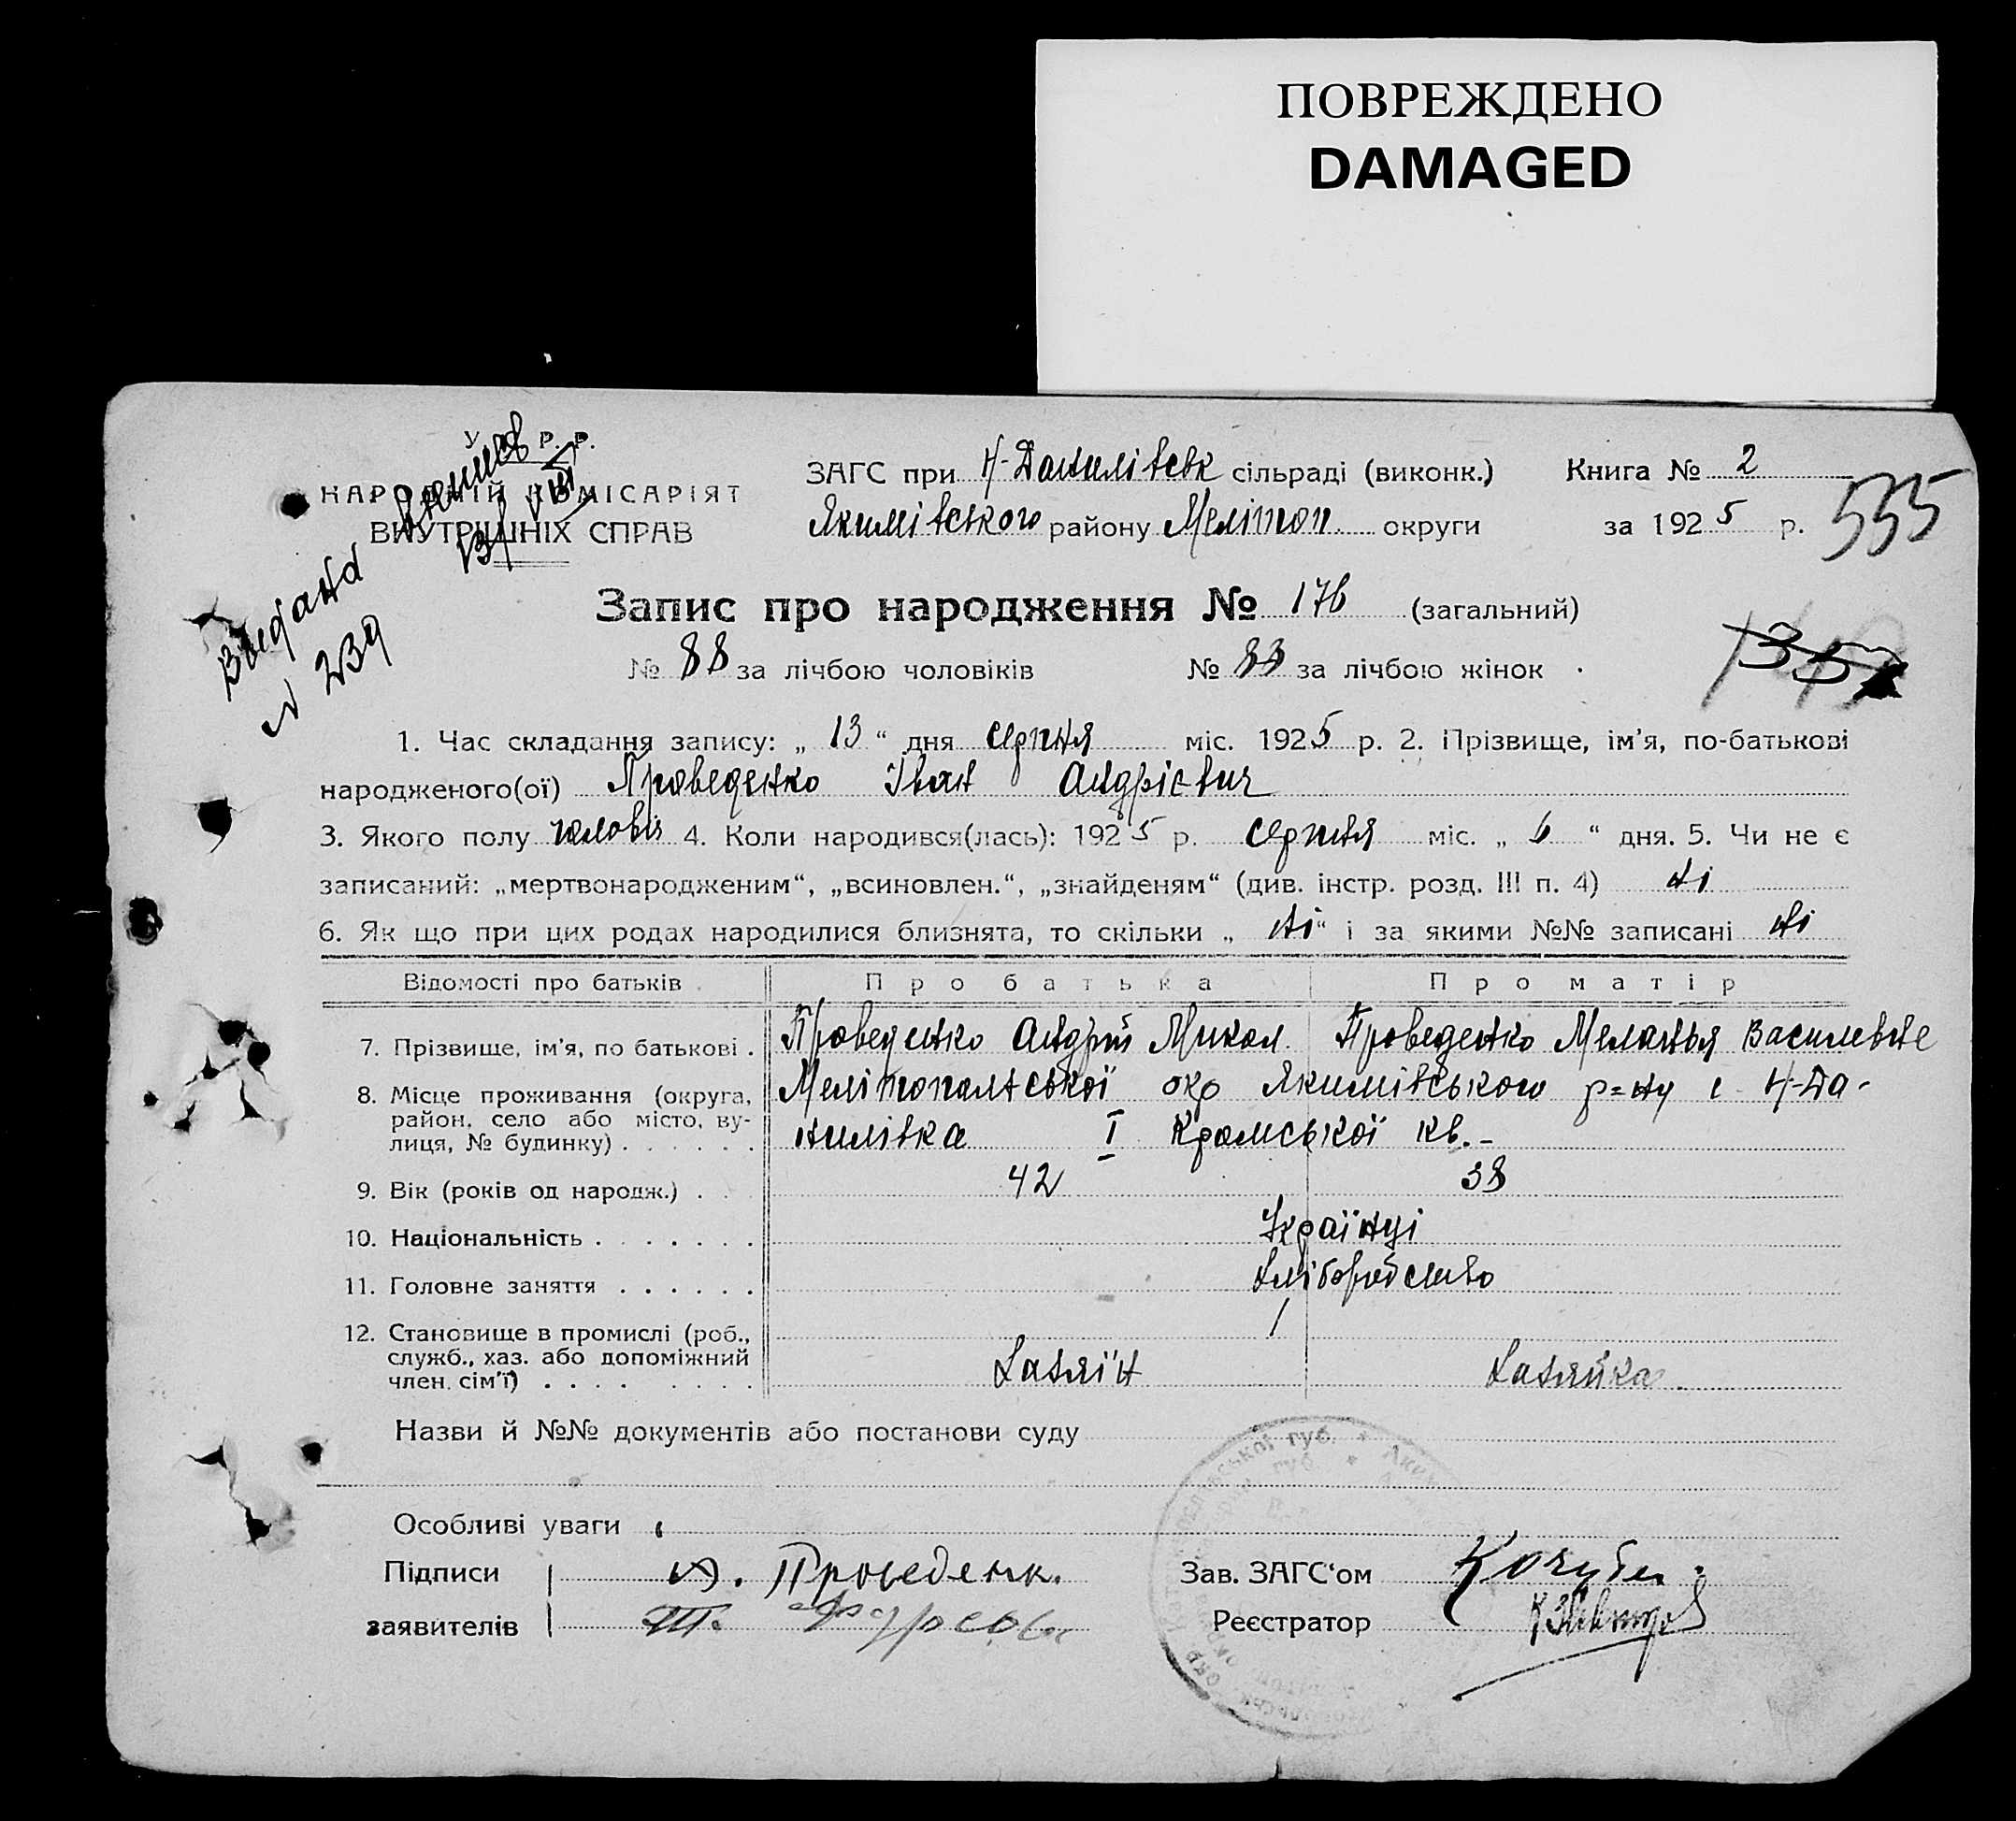 ПОВРЕЖДЕНО
DAMAGED
У. С. Р. Р.
НАРОДНІЙ КОМІСАРІЯТ
ВНУТРІШНІХ СПРАВ
Выдана
N 239
ЗАГС при Н-Данилівськ сільраді (виконк.) Книга № 2
Якимівського району Мелітоп округи за 1925 р.
535
Запис про народження № 176 (загальний)
№ 88 за лічбою чоловіків № 88 за лічбою жінок
1. Час складання запису: „ 13 “ дня серпня міс. 1925 р. 2. Прізвище, ім’я, по-батькові
народженого(ої) Проведенко Іван Андрієвич
3. Якого полу чоловік 4. Коли народився(лась): 1925 р. серпня міс. „ 6 “ дня. 5. Чи не є
записаний: „мертвонародженим“, „всиновлен.“, „знайденям“ (див. інстр. розд. III п. 4) ні
6. Як що при цих родах народилися близнята, то скільки „ ні “ і за якими №№ записані ні
Відомості про батьків Про батька Про матір
7. Прізвище, ім’я, по батькові . Проведенко Андрій Микол. Проведенко Меланья Василевне
8. Місце проживання (округа, Мелітопальської окр Якимівського р=ну с. Н-Да-
район, село або місто, ву-
лиця, № будинку) . . . . . . нилівка I Кромської кв. -
9. Вік (років од народж.) . . 42 38
10. Національність . . . . . . . Українці
11. Головне заняття . . . . . . Хліборобство
12. Становище в промислі (роб.,
служб., хаз. або допоміжний
член. сім’ї) . . . . . . . . . Хазяїн Хазяйка
Назви й №№ документів або постанови суду
Особливі уваги
Підписи А. Проведенк. Зав. ЗАГС‘ом Кочубей
заявителів Реєстратор